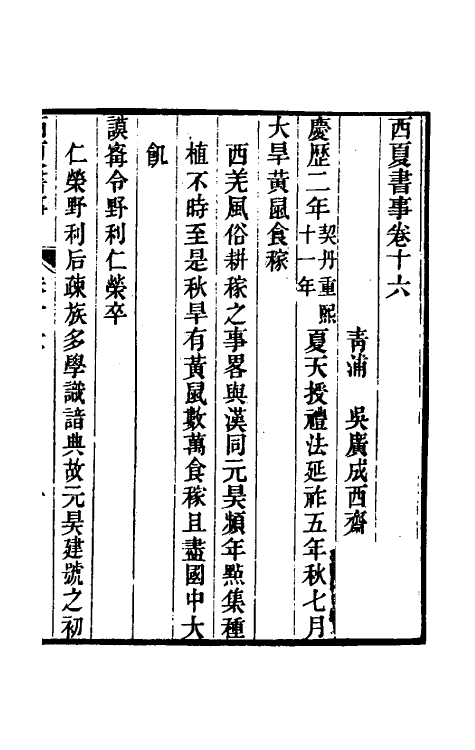 西夏書事卷十六
青浦　吳廣成西齋
慶歷二年契丹重熙十一年夏天授禮法延祚五年秋七月
大旱黃鼠食稼
西羌風俗耕稼之事畧與漢同元昊頻年點集種
植不時至是秋旱有黃鼠數萬食稼且盡國中大
飢
謨寗令野利仁榮卒
仁榮野利后疎族多學識諳典故元昊建號之初
西夏書事